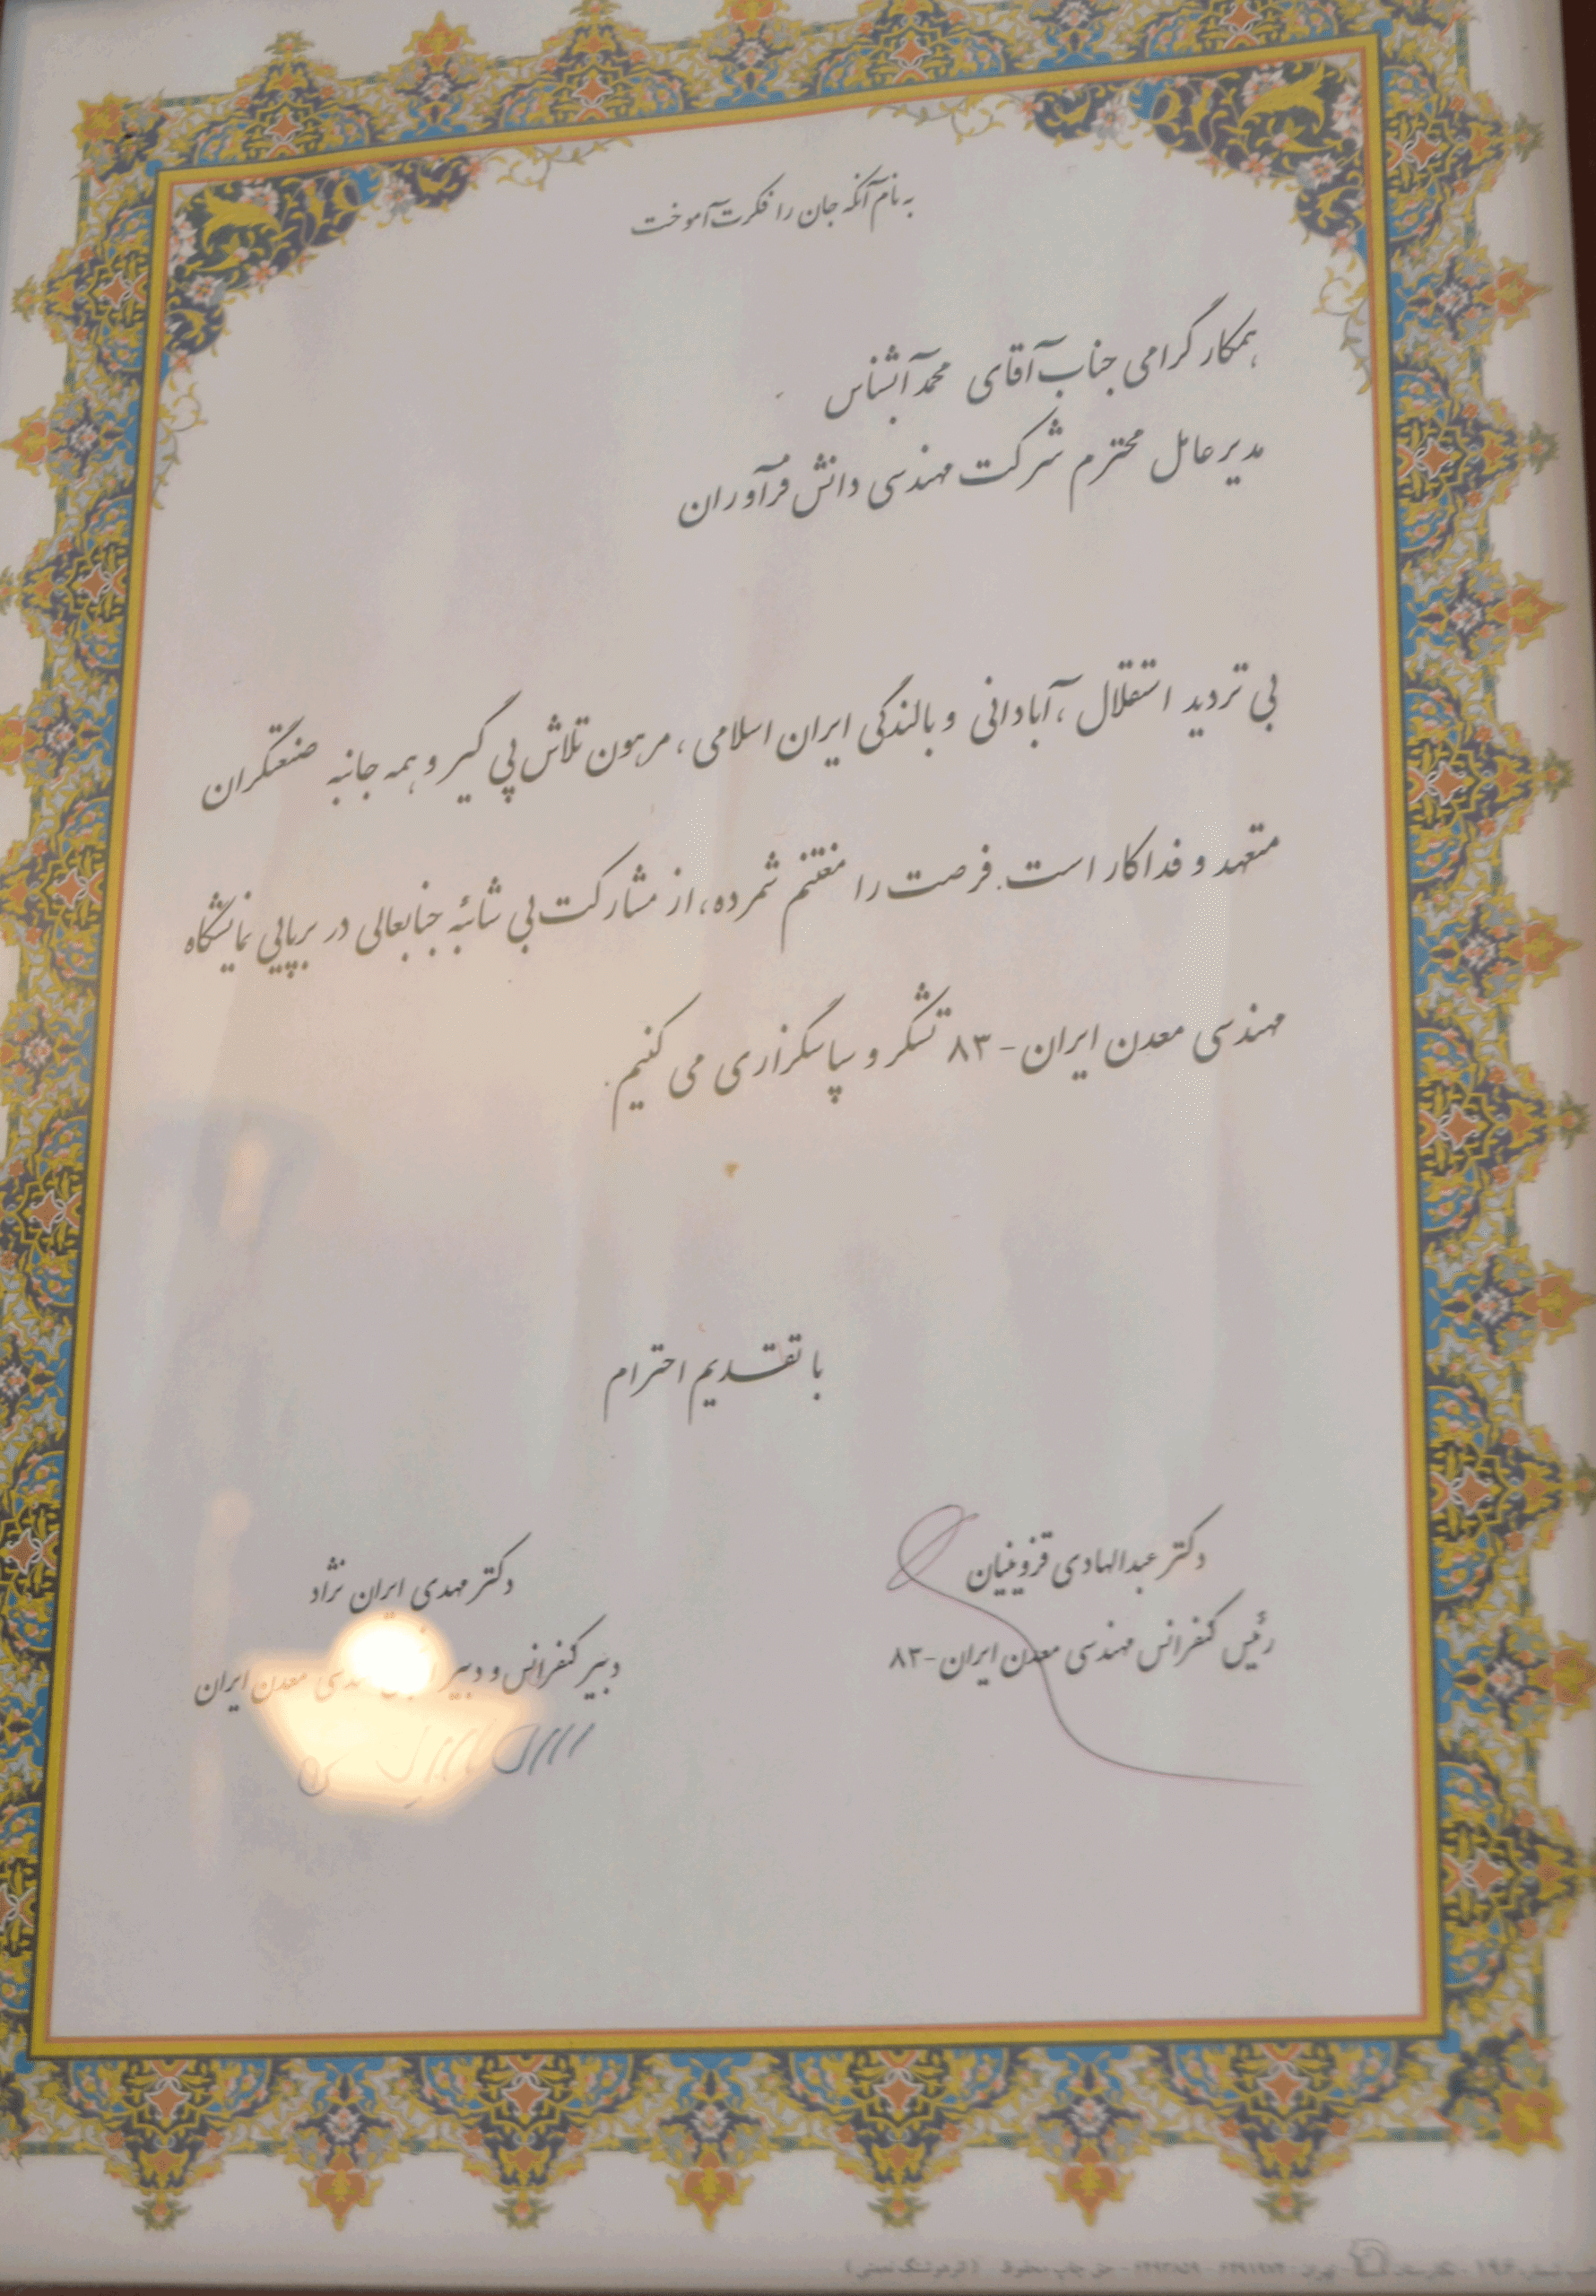 به نام آنکه جان را فکرت آموخت
همکار گرامی جناب آقای محمد آبشناس
مدیر عامل محترم شرکت مهندسی دانش فرآوران
بی تردید استقلال ، آبادانی و بالندگی ایران اسلامی ، مرهون تلاش پی گیر و همه جانبه صنعتگران
متعهد و فداکار است. فرصت را مغتنم شمرده، از مشارکت بی شائبهٔ جنابعالی در برپایی نمایشگاه
مهندسی معدن ایران - ۸۳ تشکر و سپاسگزاری می کنیم.
با تقدیم احترام
دکتر عبدالهادی قزوینیان
رئیس کنفرانس مهندسی معدن ایران - ۸۳
دکتر مهدی ایران نژاد
دبیر کنفرانس و دبیر معدن ایران